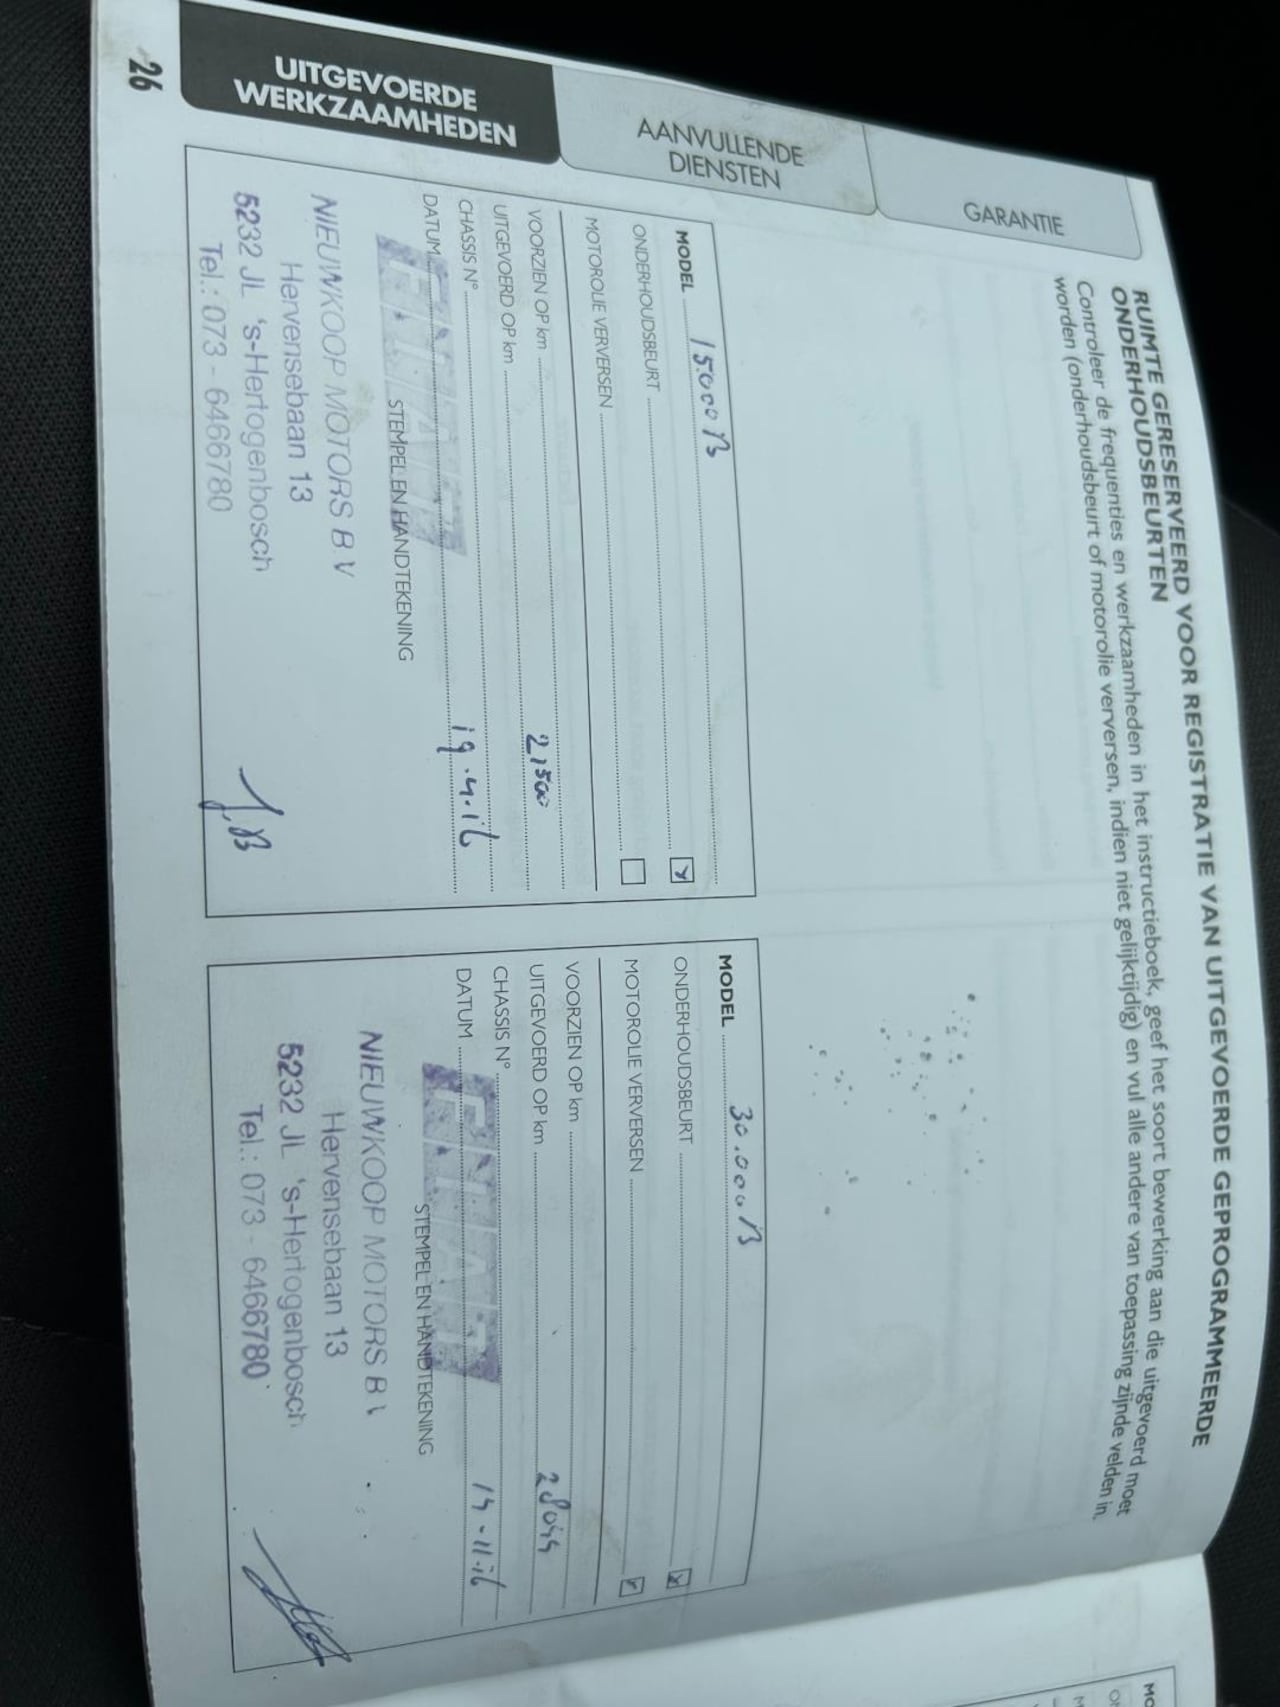 RUIMTE GERESERVEERD VOOR REGISTRATIE VAN UITGEVOERDE GEPROGRAMMEERDE
ONDERHOUDSBEURTEN
Controleer de frequenties en werkzaamheden in het instructieboek, geef het soort bewerking aan die uitgevoerd moet
worden (onderhoudsbeurt of motorolie verversen, indien niet gelijktijdig) en vul alle andere van toepassing zijnde velden in.
GARANTIE
AANVULLENDE
DIENSTEN
UITGEVOERDE
WERKZAAMHEDEN
MODEL 15.000 B
ONDERHOUDSBEURT
MOTOROLIE VERVERSEN
VOORZIEN OP km
UITGEVOERD OP km 21500
CHASSIS N°
DATUM 19.4.16
STEMPEL EN HANDTEKENING
NIEUWKOOP MOTORS B.V
Hervensebaan 13
5232 JL 's-Hertogenbosch
Tel.: 073 - 6466780
MODEL 30.000 B
ONDERHOUDSBEURT
MOTOROLIE VERVERSEN
VOORZIEN OP km
UITGEVOERD OP km
CHASSIS N°
DATUM
STEMPEL EN HANDTEKENING
NIEUWKOOP MOTORS B
Hervensebaan 13
5232 JL 's-Hertogenbosch
Tel.: 073 - 6466780
26